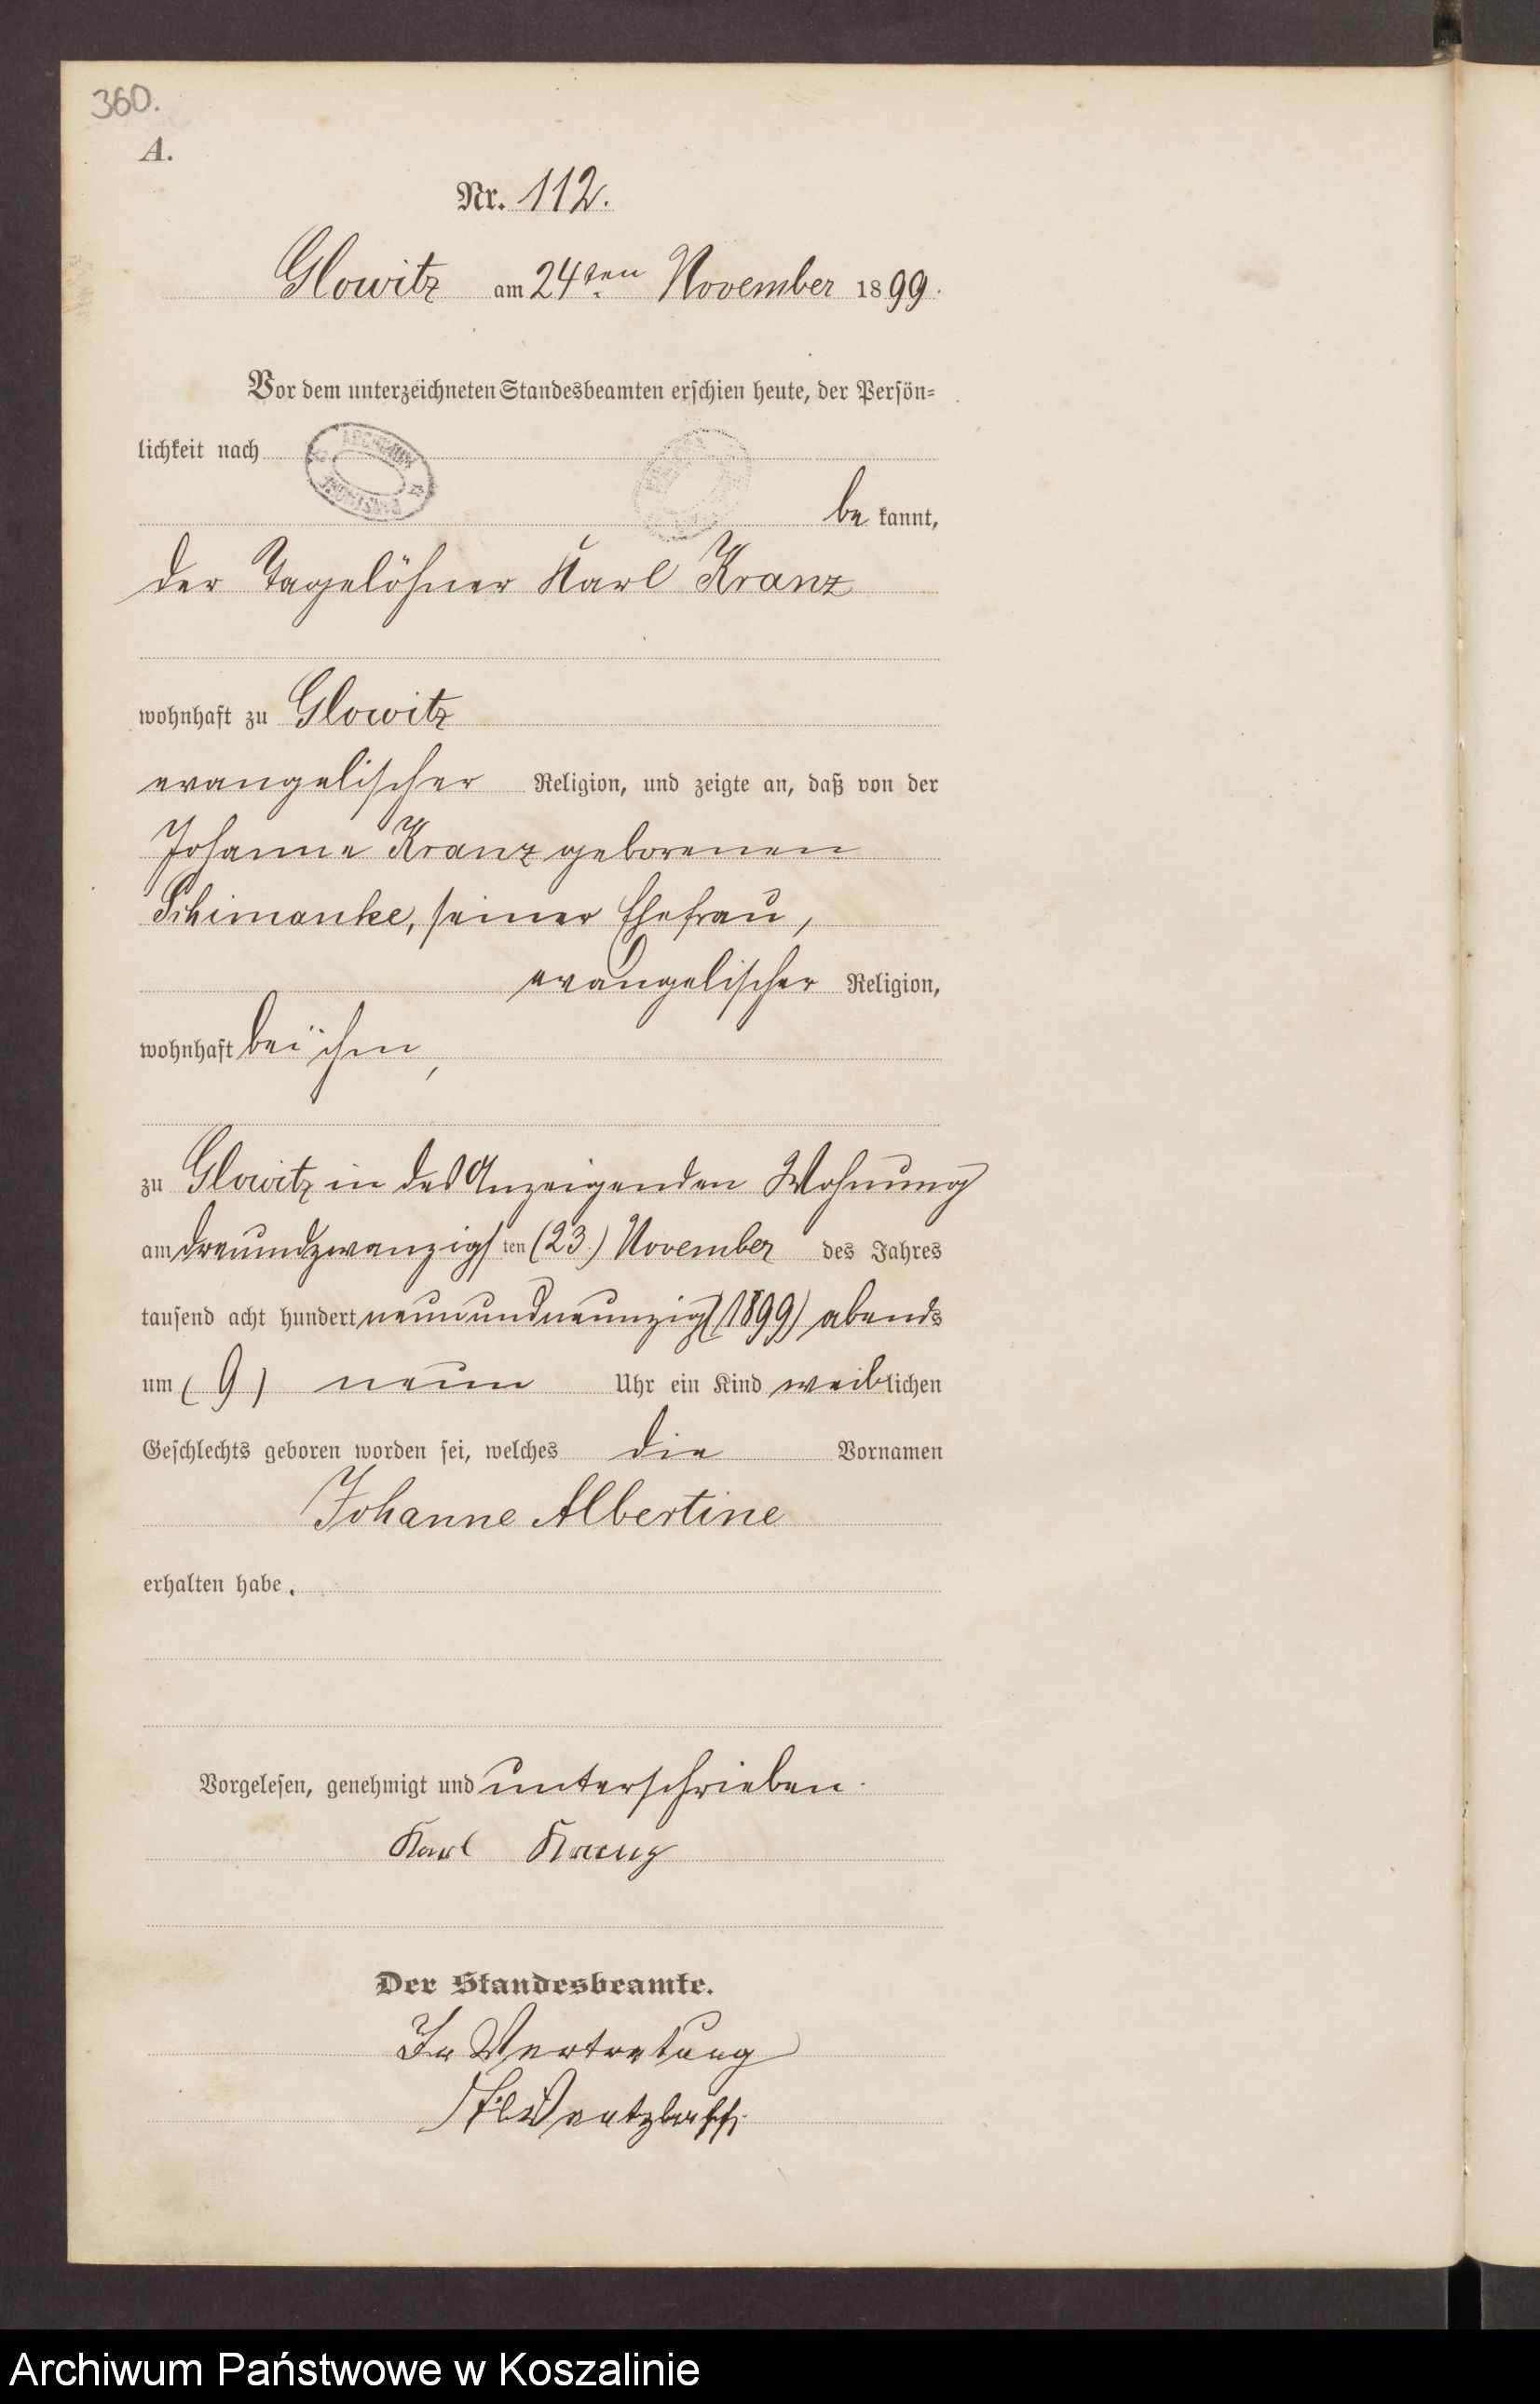 360.
A.
Nr. 112.
Glowitz am 24ten November 1899.
Vor dem unterzeichneten Standesbeamten erschien heute, der Persön-
lichkeit nach
bekannt,
der Tagelöhner Karl Kranz
wohnhaft zu Glowitz
evangelischer Religion, und zeigte an, daß von der
Johanne Kranz geborenen
Schimanke, seiner Ehefrau,
evangelischer Religion,
wohnhaft bei ihm,
zu Glowitz in des Anzeigenden Wohnung
am dreiundzwanzigsten (23.) November des Jahres
tausend acht hundert neunundneunzig (1899) abends
um (9) neun Uhr ein Kind weiblichen
Geschlechts geboren worden sei, welches die Vornamen
Johanne Albertine
erhalten habe.
Vorgelesen, genehmigt und unterschrieben.
Karl Kranz
Der Standesbeamte.
In Vertretung
Archiwum Państwowe w Koszalinie